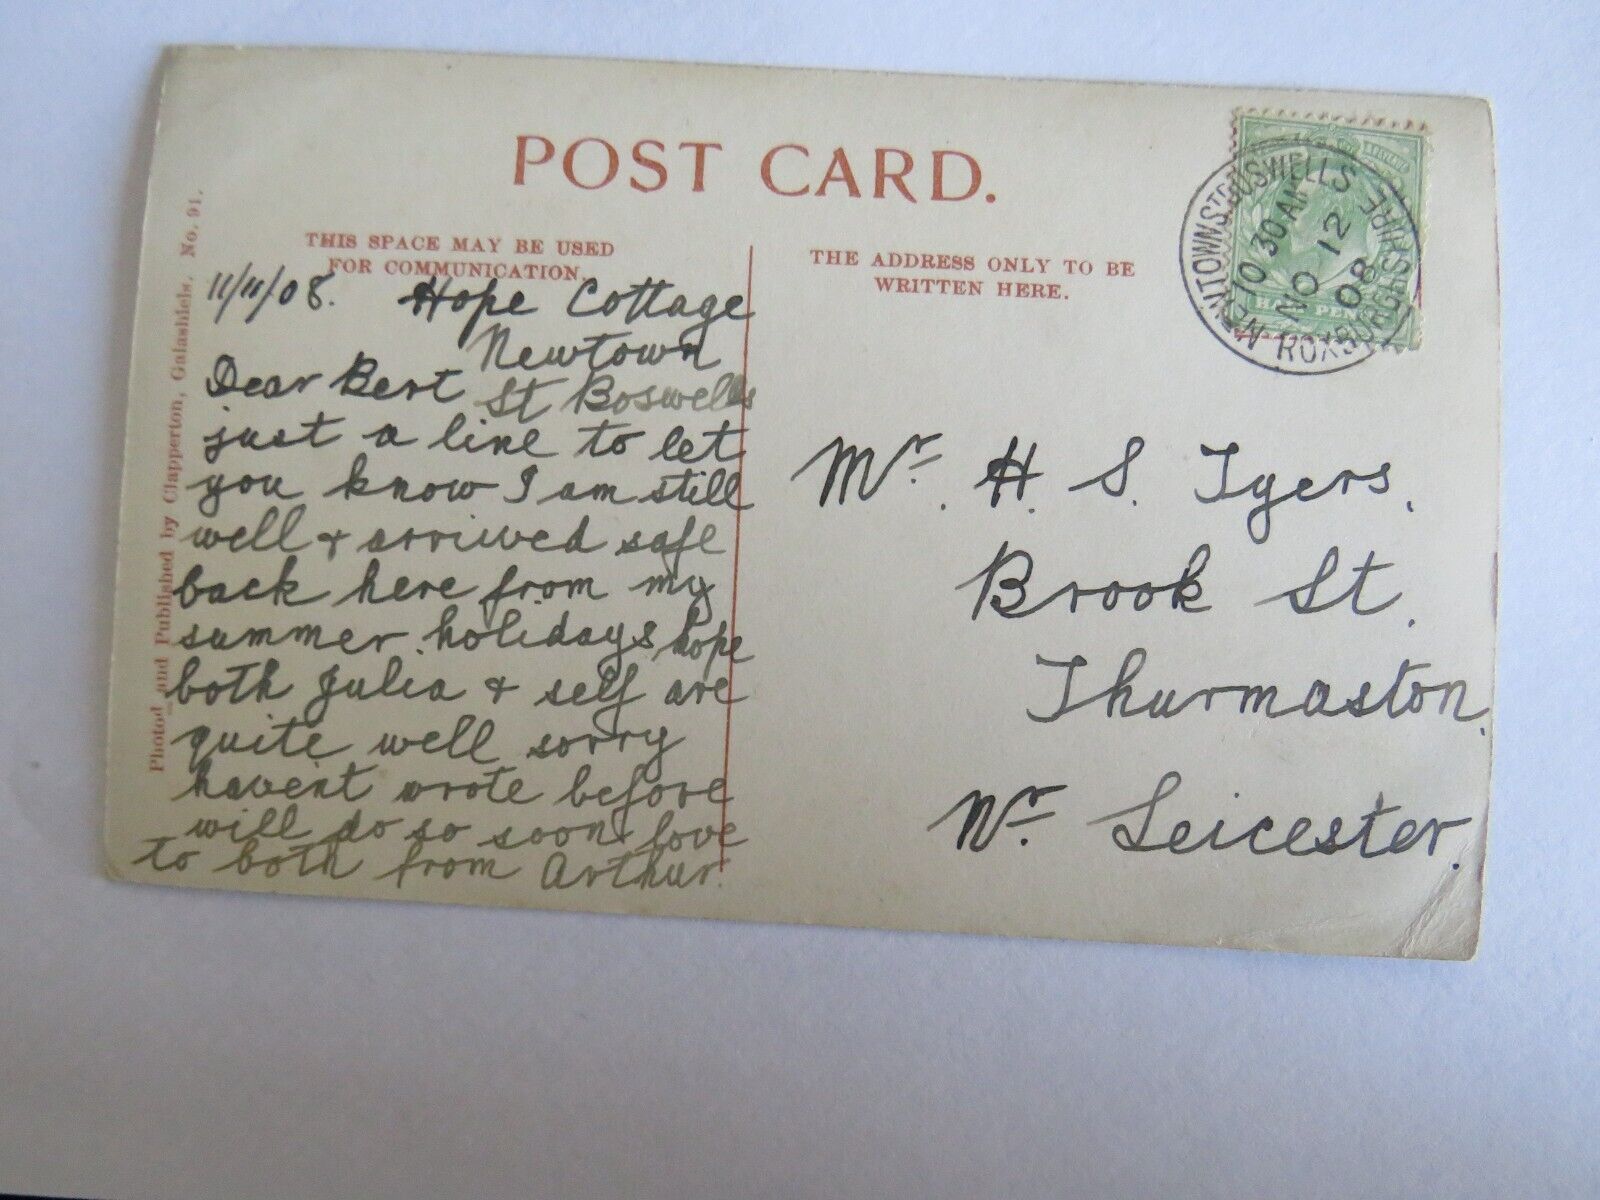 POST CARD.
THIS SPACE MAY BE USED
FOR COMMUNICATION.
THE ADDRESS ONLY TO BE
WRITTEN HERE.
Photod. and Published by Clapperton, Galashiels. No. 91.
11/11/08. Hope Cottage
Newtown
St Boswells
Dear Bert
just a line to let
you know I am still
well & arrived safe
back here from my
summer holidays hope
both Julia & self are
quite well sorry
havent wrote before
will do so soon love
to both from Arthur.
Mr. H. S. Tygers.
Brook St.
Thurmaston.
Nr. Leicester.
NEWTOWN ST. BOSWELLS
10 30 AM
NO 12
08
ROXBURGHSHIRE
HALF PENNY